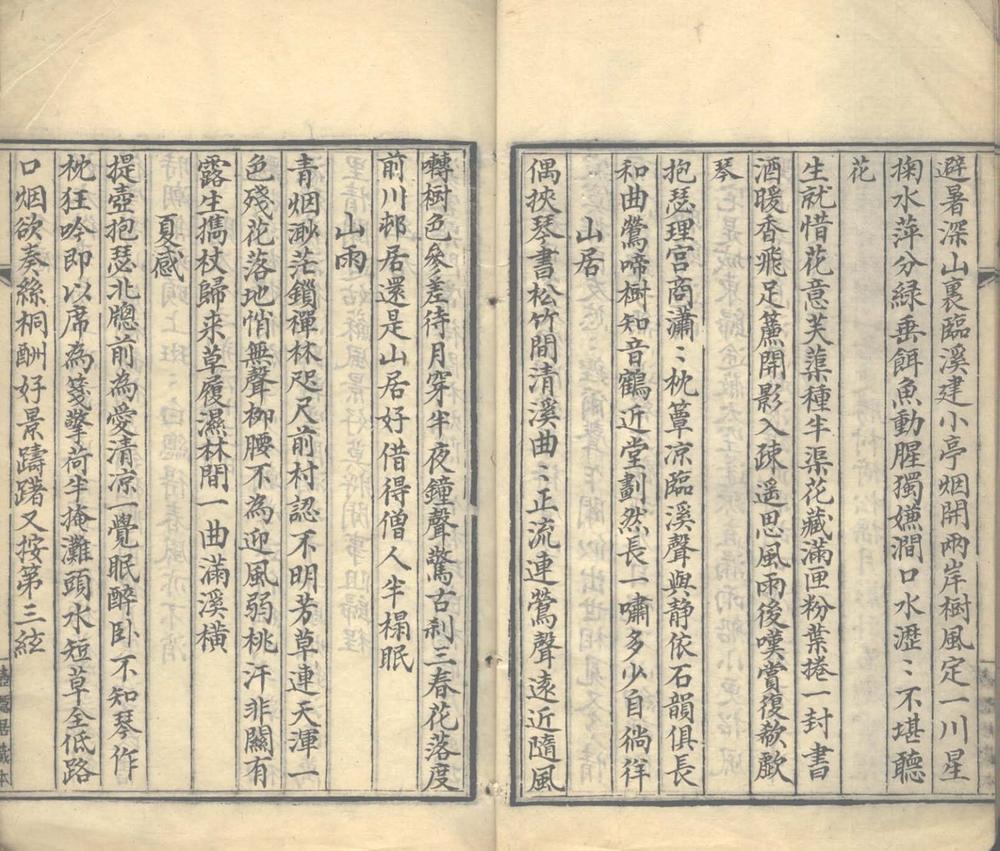 避暑深山裏臨溪建小亭烟開兩岸樹風定一川星
掬水萍分綠垂餌魚動腥獨嫌澗口水瀝〻不堪聽
花
生就惜花意芙蕖種半渠花藏滿匣粉葉捲一封書
酒暖香飛足簾開影入疎遥思風雨後嘆賞復欷歔
琴
抱瑟理宫商瀟〻枕簟凉臨溪聲與静依石韻俱長
和曲鶯啼樹知音鶴近堂劃然長一嘯多少自徜徉
山居
偶挾琴書松竹間清溪曲〻正流連鶯聲遠近隨風
囀樹色參差待月穿半夜鐘聲驚古刹三春花落度
前川邨居還是山居好借得僧人半榻眠
山雨
青烟渺茫鎖禪林咫尺前村認不明芳草連天渾一
色殘花落地悄無聲柳腰不為迎風弱桃汗非關有
露生攜杖歸来草履濕林間一曲滿溪橫
夏感
提壺抱瑟北牕前為愛清凉一覺眠醉卧不知琴作
枕狂吟即以席為箋擎荷半掩灘頭水短草全低路
口烟欲奏絲桐酬好景躊躇又按第三絃
居藏本